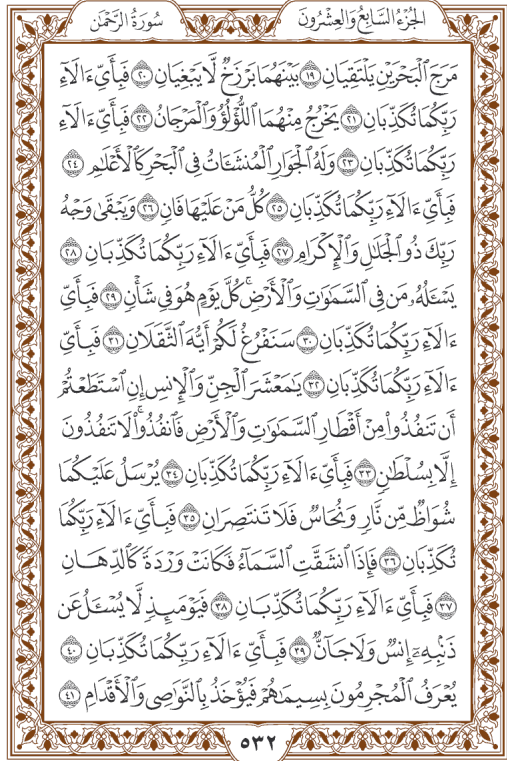 سُورَةُ الرَّحْمٰن
الجُزْءُ السَّابِعُ وَالعِشْرُونَ
مَرَجَ ٱلْبَحْرَيْنِ يَلْتَقِيَانِ ١٩ بَيْنَهُمَا بَرْزَخٌ لَّا يَبْغِيَانِ ٢٠ فَبِأَيِّ ءَالَآءِ
رَبِّكُمَا تُكَذِّبَانِ ٢١ يَخْرُجُ مِنْهُمَا ٱللُّؤْلُؤُ وَٱلْمَرْجَانُ ٢٢ فَبِأَيِّ ءَالَآءِ
رَبِّكُمَا تُكَذِّبَانِ ٢٣ وَلَهُ ٱلْجَوَارِ ٱلْمُنشَـَٔاتُ فِى ٱلْبَحْرِ كَٱلْأَعْلَٰمِ ٢٤
فَبِأَيِّ ءَالَآءِ رَبِّكُمَا تُكَذِّبَانِ ٢٥ كُلُّ مَنْ عَلَيْهَا فَانٍ ٢٦ وَيَبْقَىٰ وَجْهُ
رَبِّكَ ذُو ٱلْجَلَٰلِ وَٱلْإِكْرَامِ ٢٧ فَبِأَيِّ ءَالَآءِ رَبِّكُمَا تُكَذِّبَانِ ٢٨
يَسْـَٔلُهُۥ مَن فِى ٱلسَّمَٰوَٰتِ وَٱلْأَرْضِ ۚ كُلَّ يَوْمٍ هُوَ فِى شَأْنٍ ٢٩ فَبِأَيِّ
ءَالَآءِ رَبِّكُمَا تُكَذِّبَانِ ٣٠ سَنَفْرُغُ لَكُمْ أَيُّهَ ٱلثَّقَلَانِ ٣١ فَبِأَيِّ
ءَالَآءِ رَبِّكُمَا تُكَذِّبَانِ ٣٢ يَٰمَعْشَرَ ٱلْجِنِّ وَٱلْإِنسِ إِنِ ٱسْتَطَعْتُمْ
أَن تَنفُذُوا۟ مِنْ أَقْطَارِ ٱلسَّمَٰوَٰتِ وَٱلْأَرْضِ فَٱنفُذُوا۟ ۚ لَا تَنفُذُونَ
إِلَّا بِسُلْطَٰنٍ ٣٣ فَبِأَيِّ ءَالَآءِ رَبِّكُمَا تُكَذِّبَانِ ٣٤ يُرْسَلُ عَلَيْكُمَا
شُوَاظٌ مِّن نَّارٍ وَنُحَاسٌ فَلَا تَنتَصِرَانِ ٣٥ فَبِأَيِّ ءَالَآءِ رَبِّكُمَا
تُكَذِّبَانِ ٣٦ فَإِذَا ٱنشَقَّتِ ٱلسَّمَآءُ فَكَانَتْ وَرْدَةً كَٱلدِّهَانِ
٣٧ فَبِأَيِّ ءَالَآءِ رَبِّكُمَا تُكَذِّبَانِ ٣٨ فَيَوْمَئِذٍ لَّا يُسْـَٔلُ عَن
ذَنۢبِهِۦٓ إِنسٌ وَلَا جَآنٌّ ٣٩ فَبِأَيِّ ءَالَآءِ رَبِّكُمَا تُكَذِّبَانِ ٤٠
يُعْرَفُ ٱلْمُجْرِمُونَ بِسِيمَٰهُمْ فَيُؤْخَذُ بِٱلنَّوَٰصِى وَٱلْأَقْدَامِ ٤١
٥٣٢